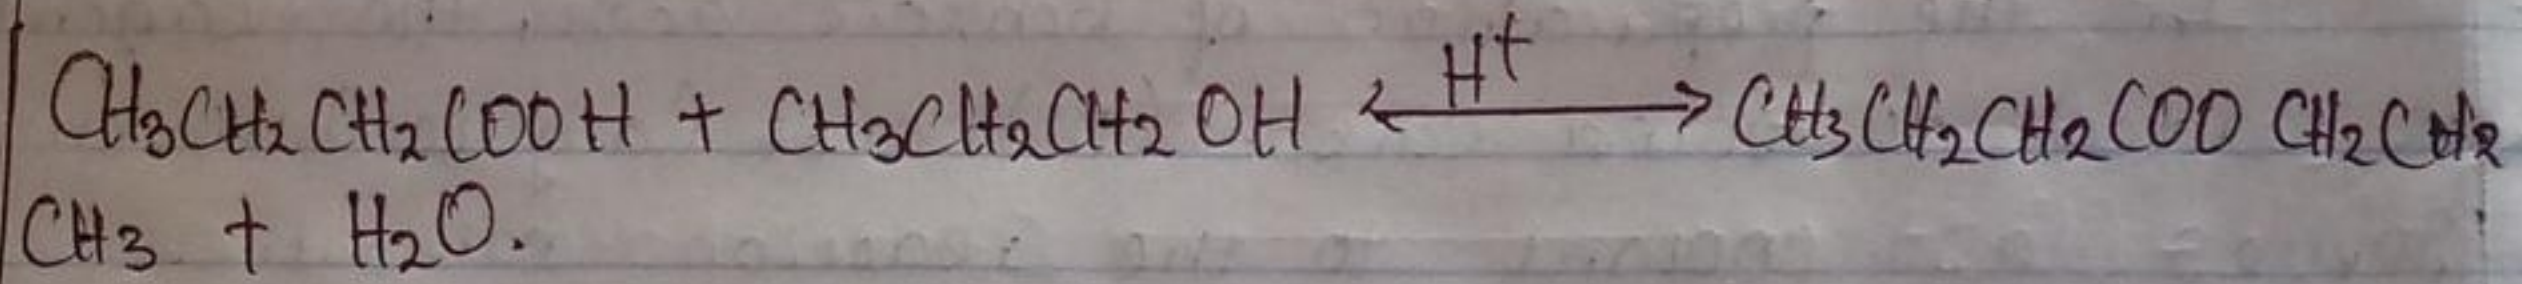 CH₃CH₂CH₂COOH + CH₃CH₂CH₂OH <-H⁺-> CH₃CH₂CH₂COO CH₂CH₂
CH₃ + H₂O.